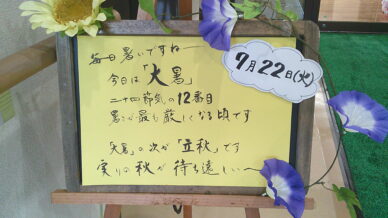 毎日暑いですね
7月22日(火)
今日は「大暑」
二十四節気の12番目
暑さが最も厳しくなる頃です
大暑の次が「立秋」です
実りの秋が待ち遠しい〜